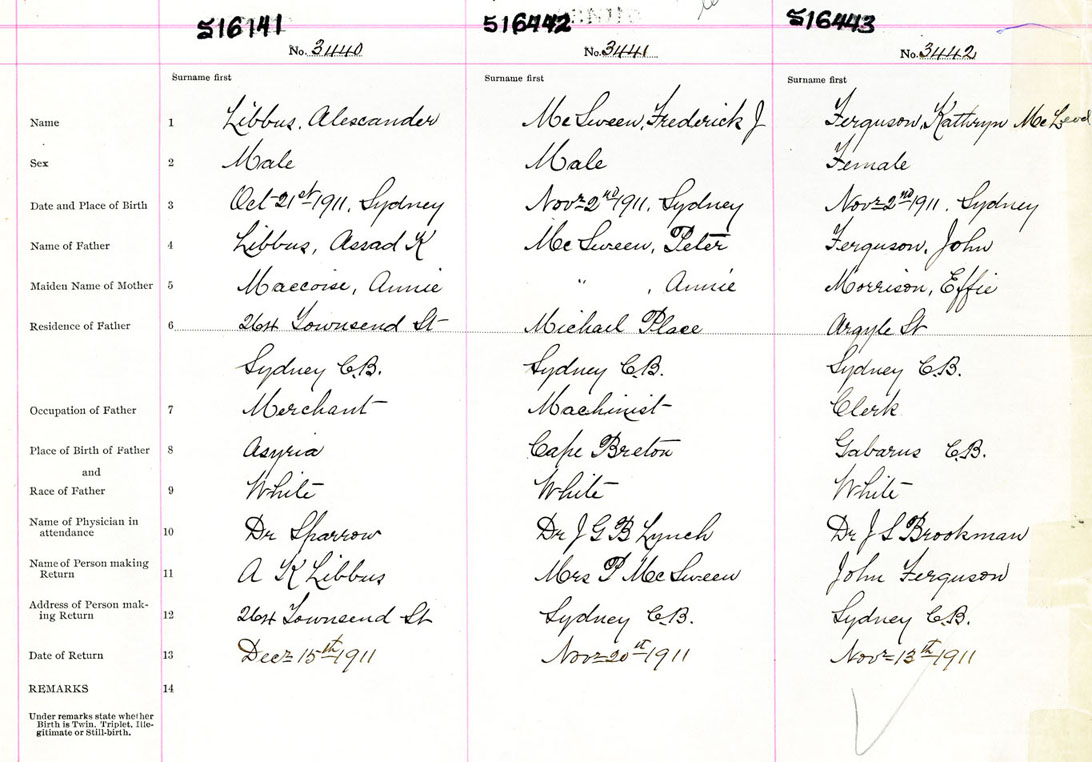 516141 516442 516443
No. 3440 No. 3441 No. 3442
Surname first Surname first Surname first
Name 1 Libbus, Alescander McSween, Frederick J Ferguson, Kathryn McLeod
Sex 2 Male Male Female
Date and Place of Birth 3 Oct 21st 1911, Sydney Nov 2nd 1911, Sydney Nov 2nd 1911, Sydney
Name of Father 4 Libbus, Assad K McSween, Peter Ferguson, John
Maiden Name of Mother 5 Annie " , Annie Morrison, Effie
Residence of Father 6 264 Townsend St Michael Place Argyle St
Sydney C.B. Sydney C.B. Sydney C.B.
Occupation of Father 7 Merchant Machinist Clerk
Place of Birth of Father 8 Asyria Cape Breton Gabarus C.B.
and
Race of Father 9 White White White
Name of Physician in
attendance 10 Dr Sparrow Dr J G B Lynch Dr J S Brookman
Name of Person making
Return 11 A K Libbus Mrs P McSween John Ferguson
Address of Person mak-
ing Return 12 264 Townsend St Sydney C.B. Sydney C.B.
Date of Return 13 Dec 15th 1911 Nov 20st 1911 Nov 13th 1911
REMARKS 14
Under remarks state whether
Birth is Twin, Triplet, Ille-
gitimate or Still-birth.